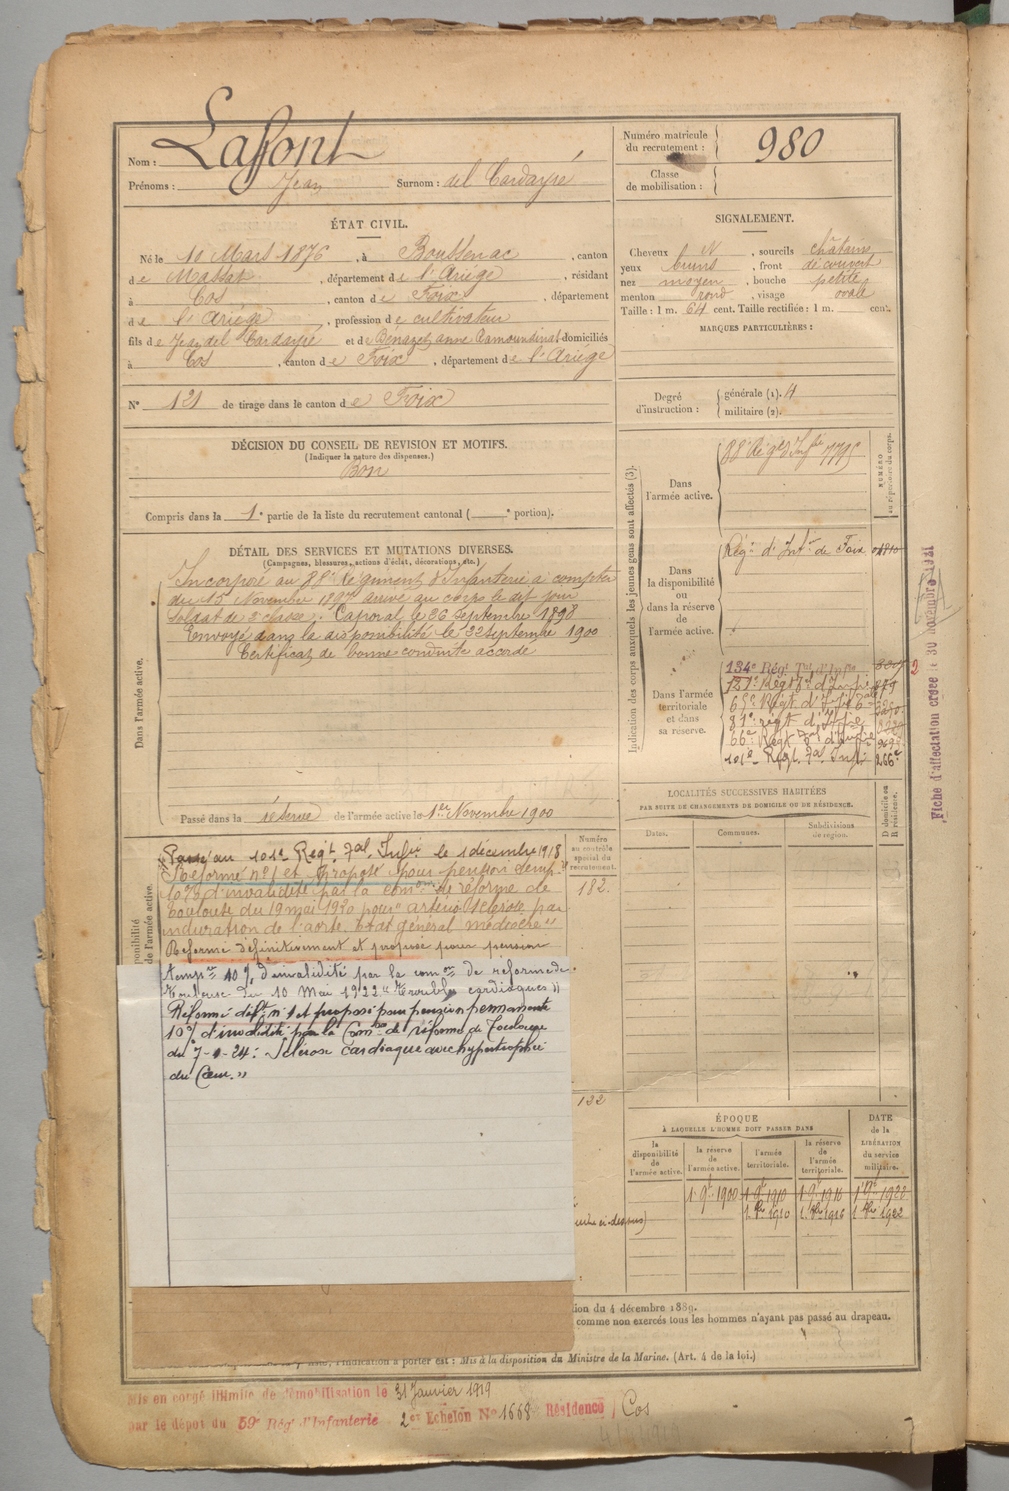 Nom : Laffont
Prénoms : Jean Surnom : del Cardayré
Numéro matricule du recrutement : 980
Classe de mobilisation :
ÉTAT CIVIL.
Né le 10 Mars 1876, à Boussenac, canton
de Massat, département de l'Ariège, résidant
à Cos, canton de Foix, département
de l'Ariège, profession de cultivateur
fils de Jean del Cardayré et de Bénazet anne Camoundinat domiciliés
à Cos, canton de Foix, département de l'Ariège
N° 121 de tirage dans le canton de Foix
SIGNALEMENT.
Cheveux N, sourcils châtains
yeux bruns, front découvert
nez moyen, bouche petite
menton rond, visage ovale
Taille : 1 m. 64 cent. Taille rectifiée : 1 m. cent.
MARQUES PARTICULIÈRES :
Degré d'instruction : générale (1). 4
militaire (2).
DÉCISION DU CONSEIL DE REVISION ET MOTIFS.
(Indiquer la nature des dispenses.)
Bon
Compris dans la 1e partie de la liste du recrutement cantonal ( e portion).
DÉTAIL DES SERVICES ET MUTATIONS DIVERSES.
(Campagnes, blessures, actions d'éclat, décorations, etc.)
Dans l'armée active.
Incorporé au 88e Régiment d'Infanterie à compter
du 15 Novembre 1897 arrivé au corps le dit jour
Soldat de 2e classe. Caporal le 26 Septembre 1898
Envoyé dans la disponibilité le 22 septembre 1900
Certificat de bonne conduite accordé
Passé dans la réserve de l'armée active le 1er Novembre 1900
Indication des corps auxquels les jeunes gens sont affectés (3).
NUMÉRO au répertoire du corps.
Dans l'armée active.
88e Régt d'Infrie 7795
Dans la disponibilité ou dans la réserve de l'armée active.
Régt d'Infie de Foix
Dans l'armée territoriale et dans sa réserve.
134e Régt Tal d'Infie
121e Régt Tal d'Infie
81e régt d'Infie
66e Régt Tal d'Infie
101e Régt Tal Infie 266
Fiche d'affectation créée le 30 novembre 1921
LOCALITÉS SUCCESSIVES HABITÉES
PAR SUITE DE CHANGEMENTS DE DOMICILE OU DE RÉSIDENCE.
Dates. Communes. Subdivisions de région. D domicile ou R résidence.
Numéro au contrôle spécial du recrutement.
182
Passé au 101e Régt Tal Infie le 1 décembre 1918
Réformé n° 1 et proposé pour pension temp
10% d'invalidité par la comon de réforme de
Toulouse du 19 mai 1920 pour "artério sclérose par
induration de l'aorte. Etat général médiocre"
Réformé définitivement et proposé pour pension
tempre 10% d'invalidité par la comon de réforme de
Toulouse du 10 Mai 1922 "Troubles cardiaques"
Réformé déft n° 1 et proposé pour pension permanente
10% d'invalidité par la Comon de réforme de Toulouse
du 7-1-24 : Sclérose cardiaque avec hypertrophie
du Cœur."
132
ci-dessus)
ÉPOQUE
À LAQUELLE L'HOMME DOIT PASSER DANS
la disponibilité de l'armée active. la réserve de l'armée active. l'armée territoriale. la réserve de l'armée territoriale. DATE de la LIBÉRATION du service militaire.
1 9bre 1900 1 9bre 1910 1 9bre 1916 1 9bre 1922
1 8bre 1910 1 8bre 1916 1 8bre 1922
tion du 4 décembre 1889.
comme non exercés tous les hommes n'ayant pas passé au drapeau.
l'indication à porter est : Mis à la disposition du Ministre de la Marine. (Art. 4 de la loi.)
Mis en congé illimité de démobilisation le 31 Janvier 1919
par le dépôt du 59e Rég d'Infanterie 2e Echelon N° 1668 Résidence, Cos